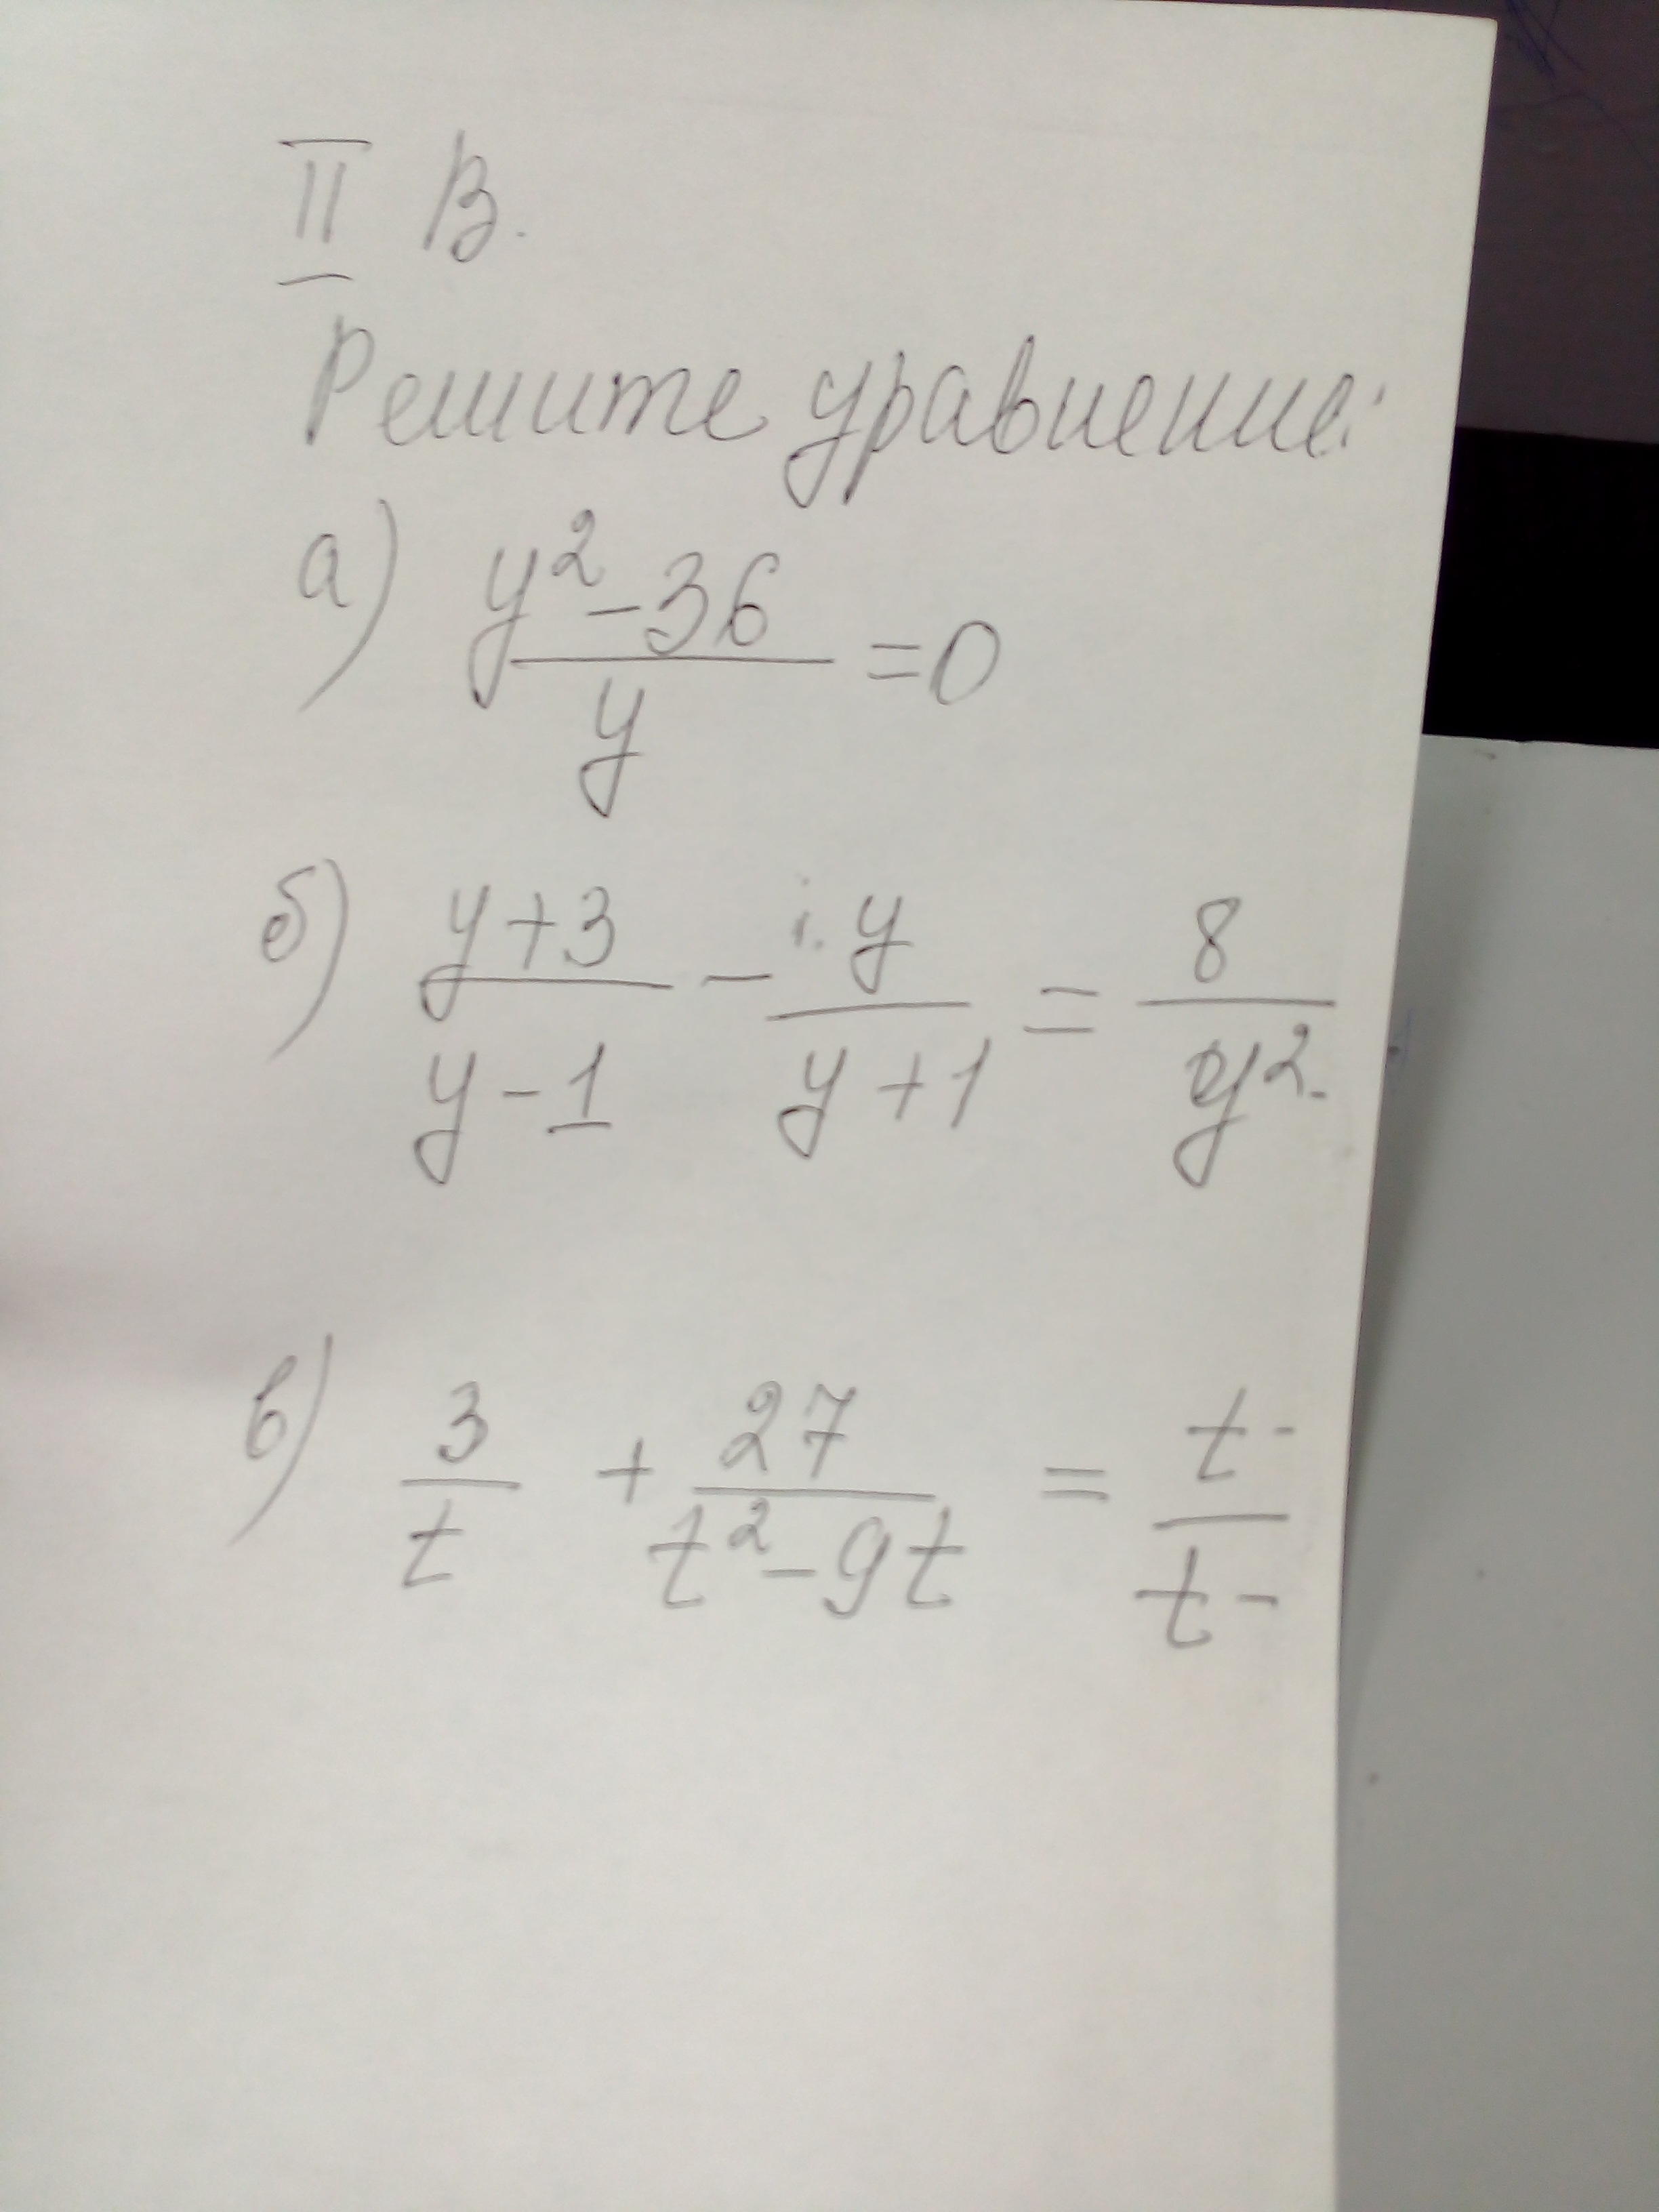 II В.
Решите уравнение:
а) (y²-36)/y =0
б) (y+3)/(y-1) - y/(y+1) = 8/y²-
в) 3/t + 27/(t²-9t) = (t-)/(t-)